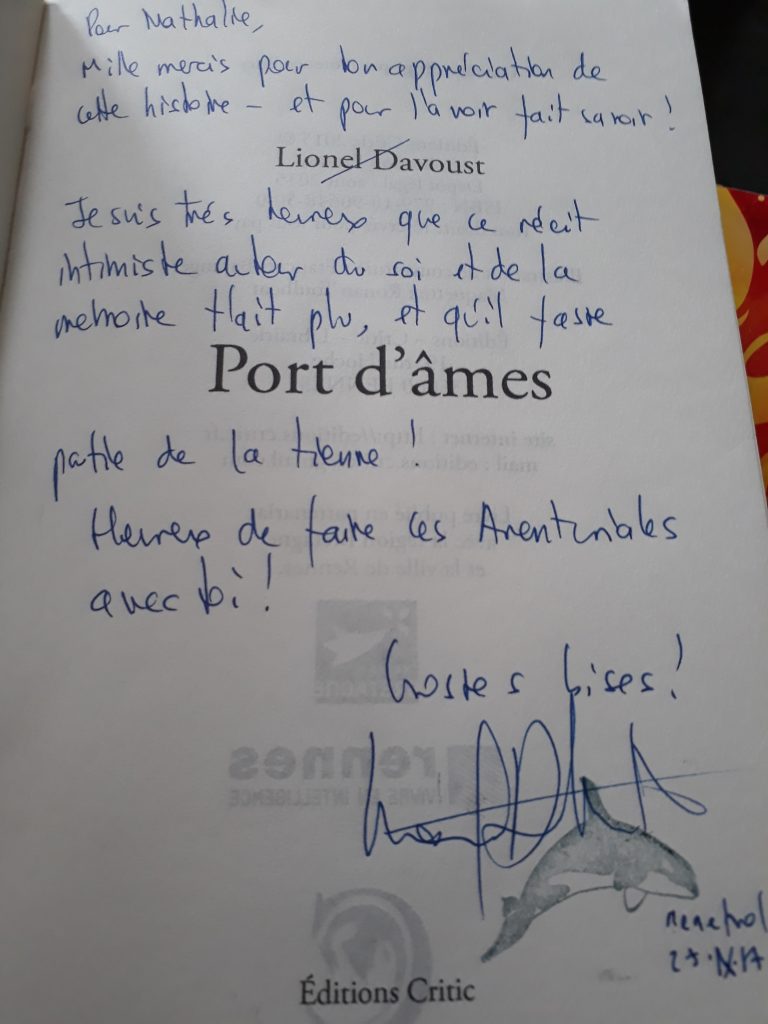 Pour Nathalie,
Mille mercis pour ton appréciation de
cette histoire – et pour l'avoir fait savoir !
Lionel Davoust
Je suis très heureux que ce récit
intimiste autour du soi et de la
mémoire t'ait plu, et qu'il fasse
Port d'âmes
partie de la tienne !
Heureux de faire ces Aventuriales
avec toi !
Grosses bises !
Menetrol
Éditions Critic